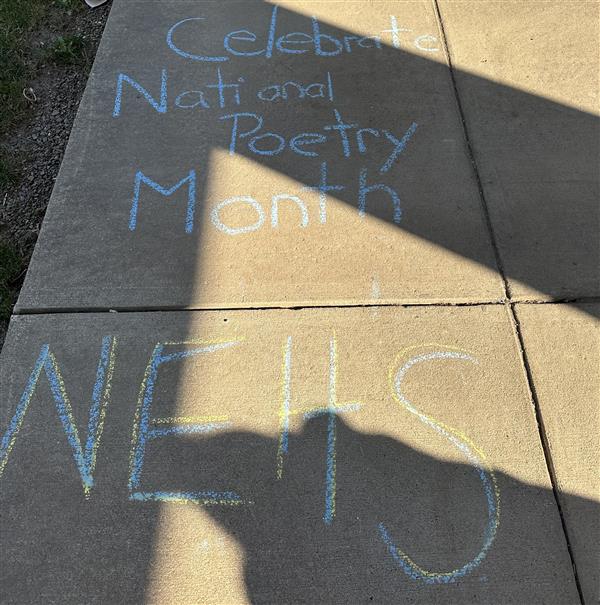 Celebrate
National
Poetry
Month
NEHS